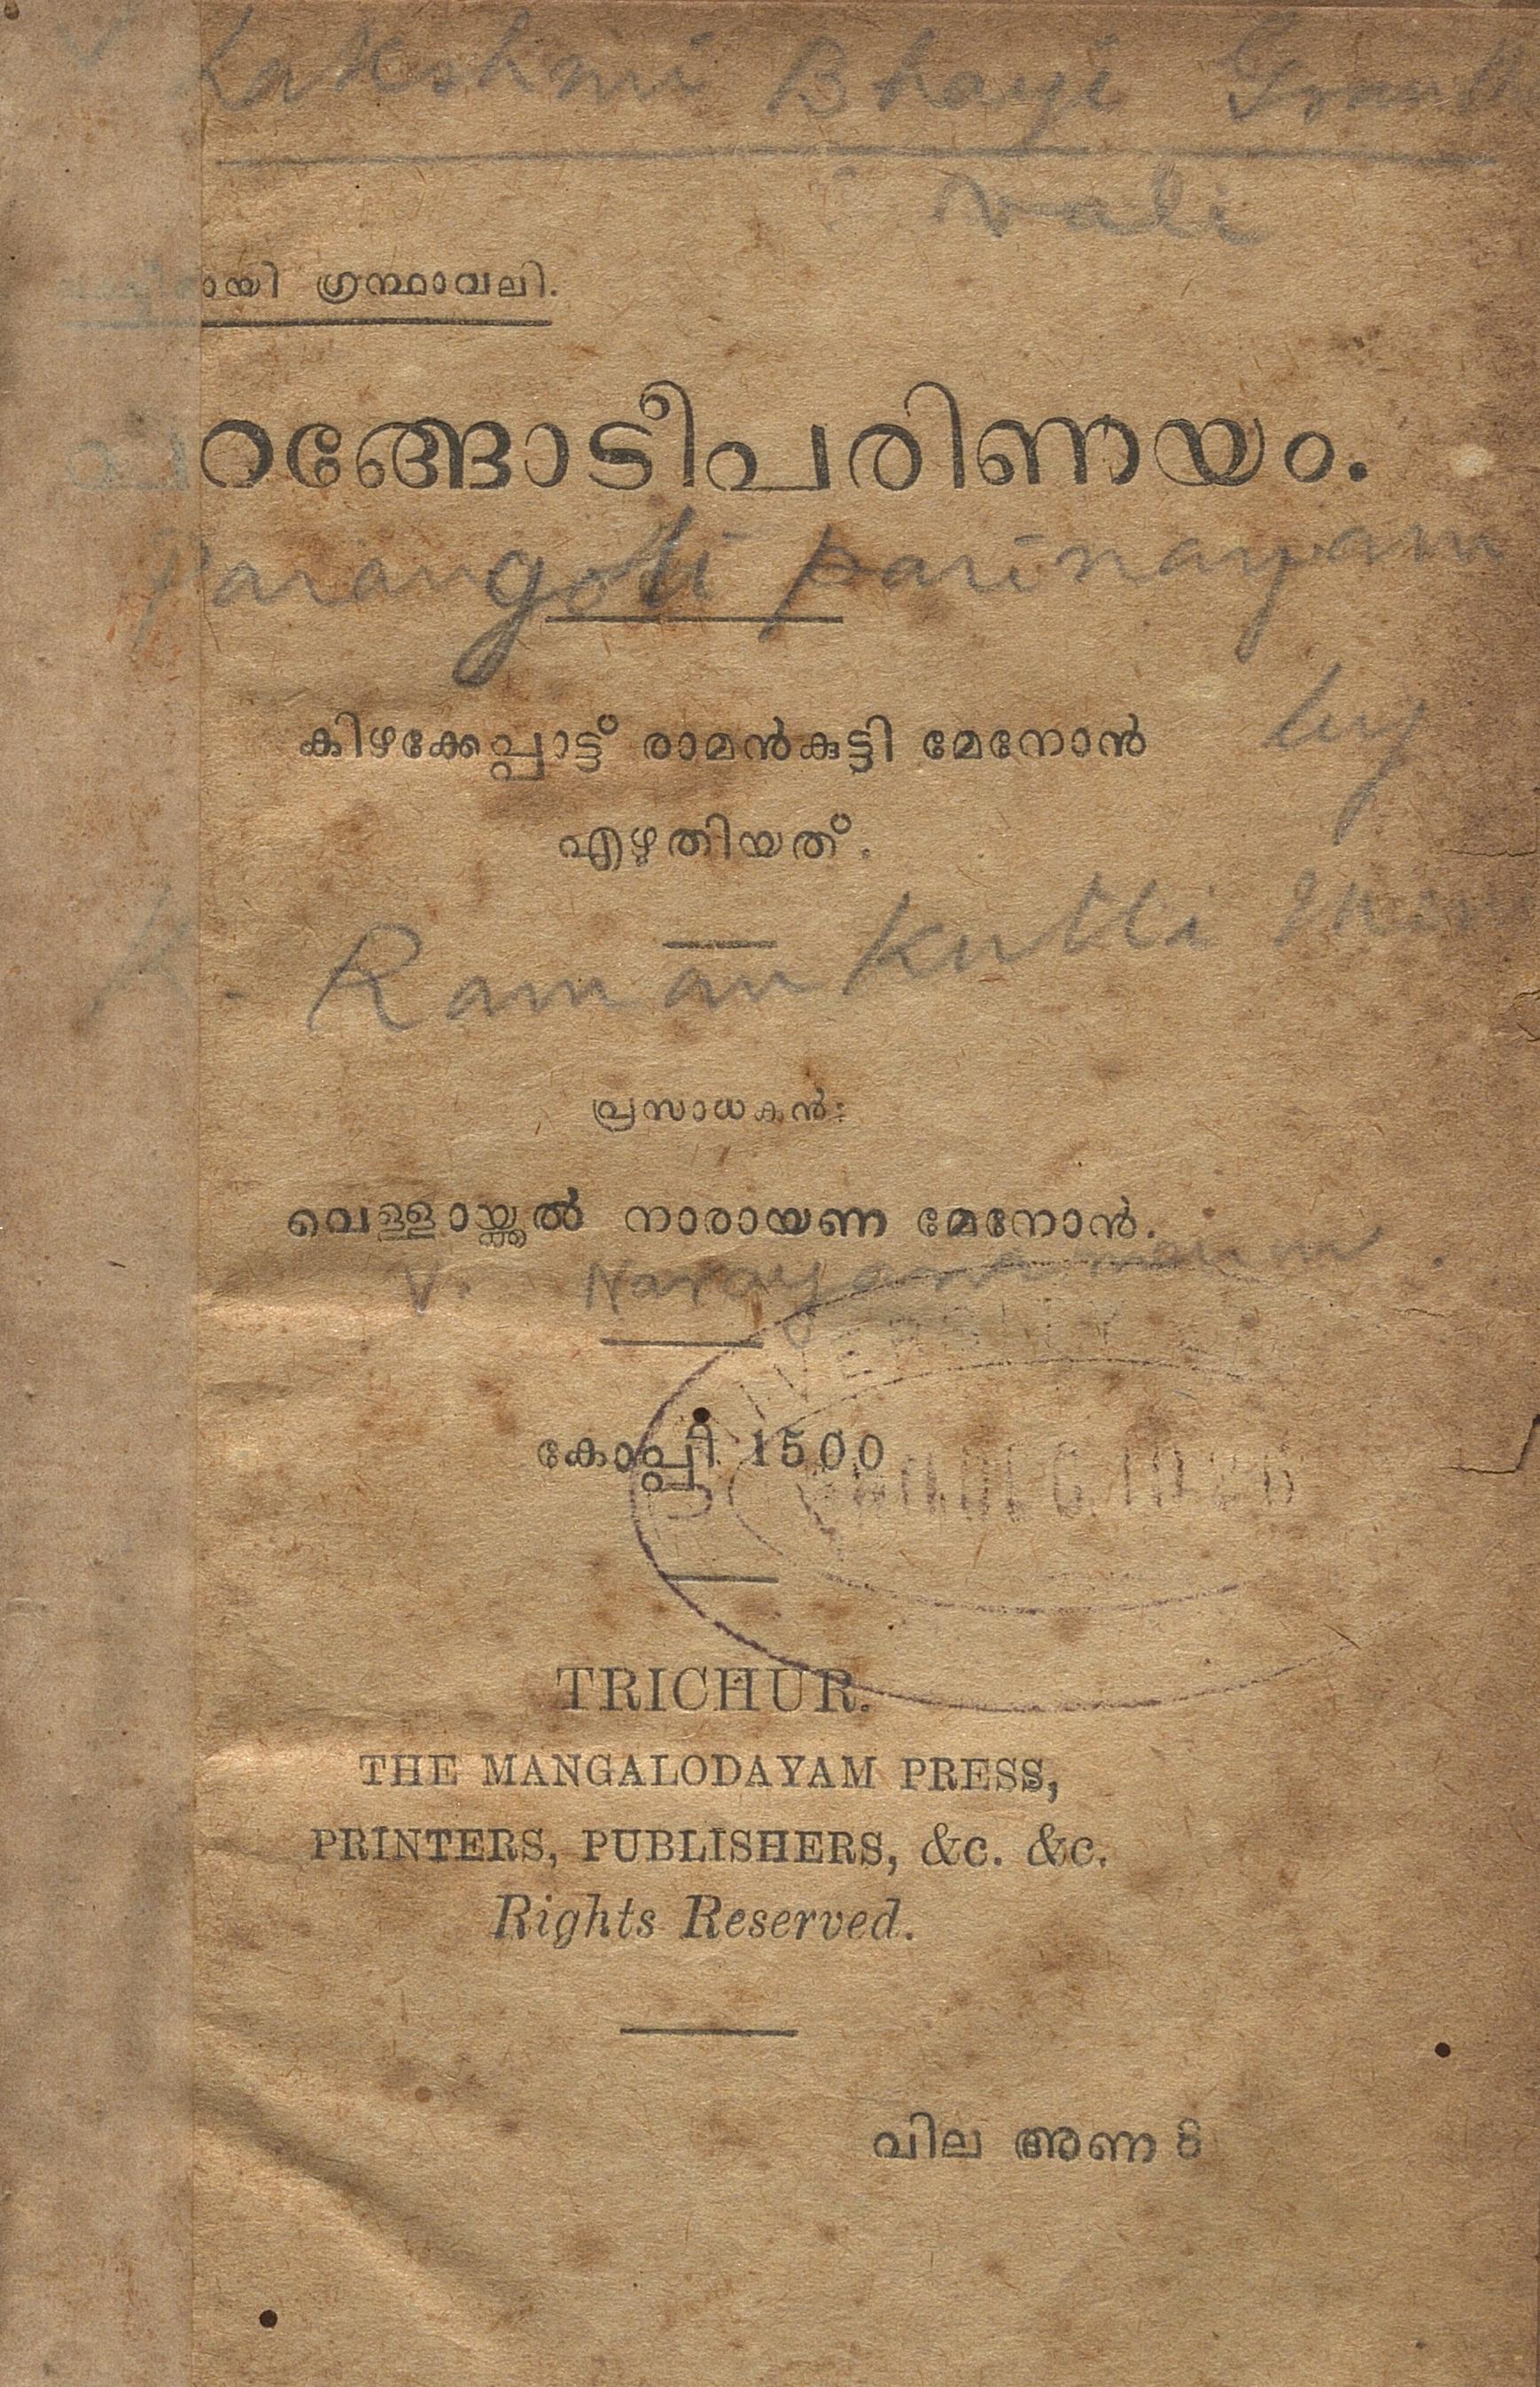 Lakshmi Bhayi
vali
ഗ്രന്ഥാവലി.
പറങ്ങോടീപരിണയം.
Parangoti parinayam
by
കിഴക്കേപ്പാട്ട് രാമൻകുട്ടി മേനോൻ
എഴുതിയത്.
K. Ramankutti
പ്രസാധകൻ:
വെള്ളായ്ക്കൽ നാരായണ മേനോൻ.
V. Narayana menon
കോപ്പി 1500
TRICHUR.
THE MANGALODAYAM PRESS,
PRINTERS, PUBLISHERS, &c. &c.
Rights Reserved.
വില അണ 8